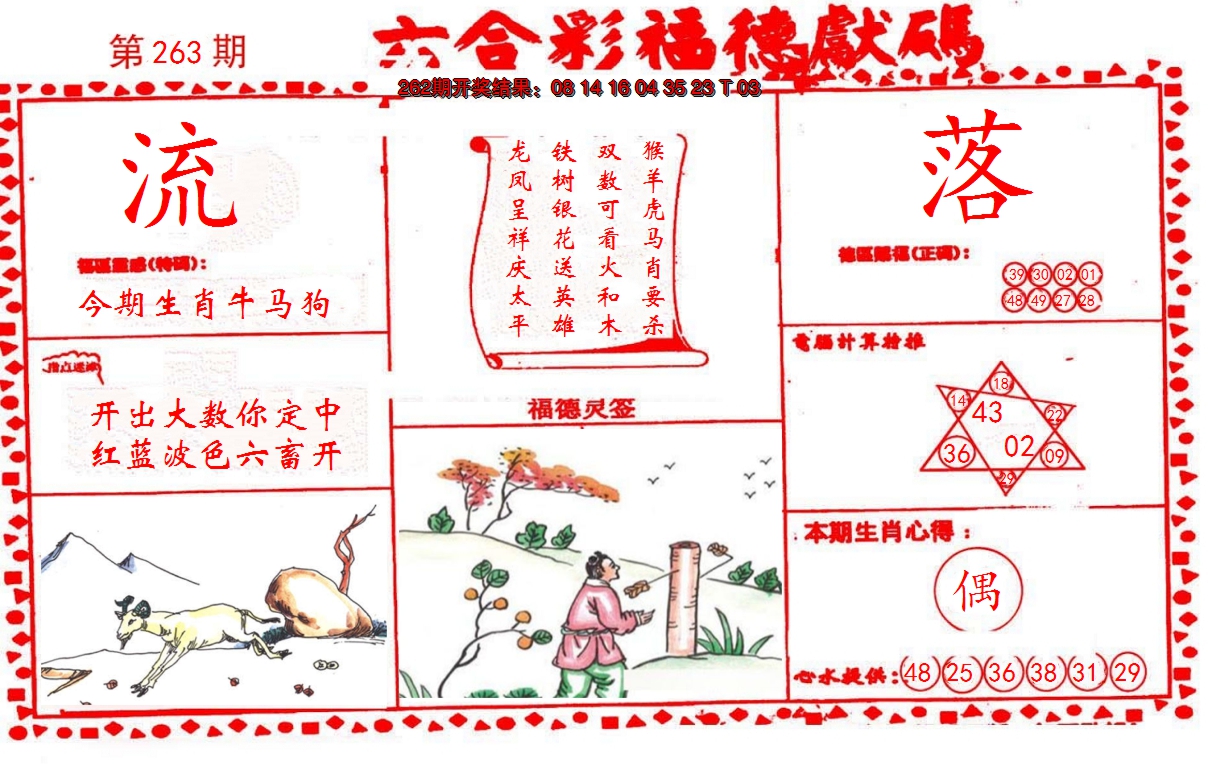 第 263 期
六合彩福德獻碼
262期开奖结果：08 14 16 04 35 23 T 03
流
福區靈感(特碼)：
今期生肖牛马狗
指点迷津
开出大数你定中
红蓝波色六畜开
猴羊虎马肖要杀
双数可看火和木
铁树银花送英雄
龙凤呈祥庆太平
福德灵签
落
德區賜福(正碼)：
39 30 02 01
48 49 27 28
電腦计算拾推
18
14 43 22
36 02 09
29
本期生肖心得：
偶
心水提供：48 25 36 38 31 29